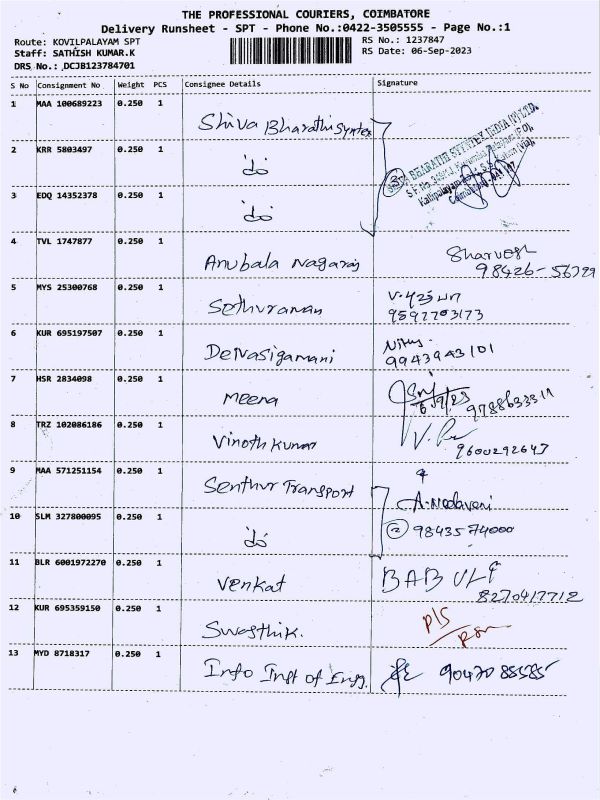 THE PROFESSIONAL COURIERS, COIMBATORE
Delivery Runsheet - SPT - Phone No.:0422-3505555 - Page No.:1
Route: KOVILPALAYAM SPT
RS No.: 1237847
Staff: SATHISH KUMAR.K
RS Date: 06-Sep-2023
DRS No.: DCJB123784701
S No Consignment No Weight PCS Consignee Details Signature
1 MAA 100689223 0.250 1 Shiva Bharathi Syntex
2 KRR 5803497 0.250 1 do
BHARATHI SYNTEX INDIA (P) LTD.
3 EDQ 14352378 0.250 1 do
3
4 TVL 1747877 0.250 1 Anubala Nagaraj Sharvesh
98426-56799
5 MYS 25300768 0.250 1 Sethuraman
9597703173
6 KUR 695197507 0.250 1 Deivasigamani
9943943101
7 HSR 2834098 0.250 1 Meena
6/9/23 9788633311
8 TRZ 102086186 0.250 1 Vinoth Kumar
9600292647
9 MAA 571251154 0.250 1 Senthur Transport
10 SLM 327800095 0.250 1 do 2 9843574000
11 BLR 6001972270 0.250 1 Venkat BABU
8270417712
12 KUR 695359150 0.250 1 Swasthik.
13 MYD 8718317 0.250 1 Info Inst of Engg. 9047088585